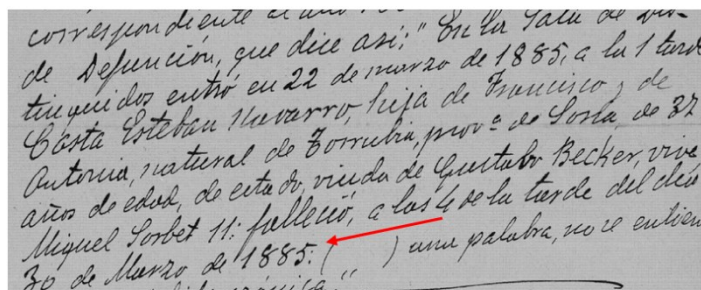 correspondiente al año
de Defunción, que dice así; " En la Sala de Dis-
tinguidos entró en 22 de marzo de 1885, a la 1 tarde
Casta Esteban Navarro, hija de Francisco y de
Antonia, natural de Torrubia, provª de Soria, de 37
años de edad, de estado, viuda de Gustabo Becker, vive
Miguel Sorbet 11; falleció, a las 4 de la tarde del día
30 de Marzo de 1885. ( ) una palabra, no se entien